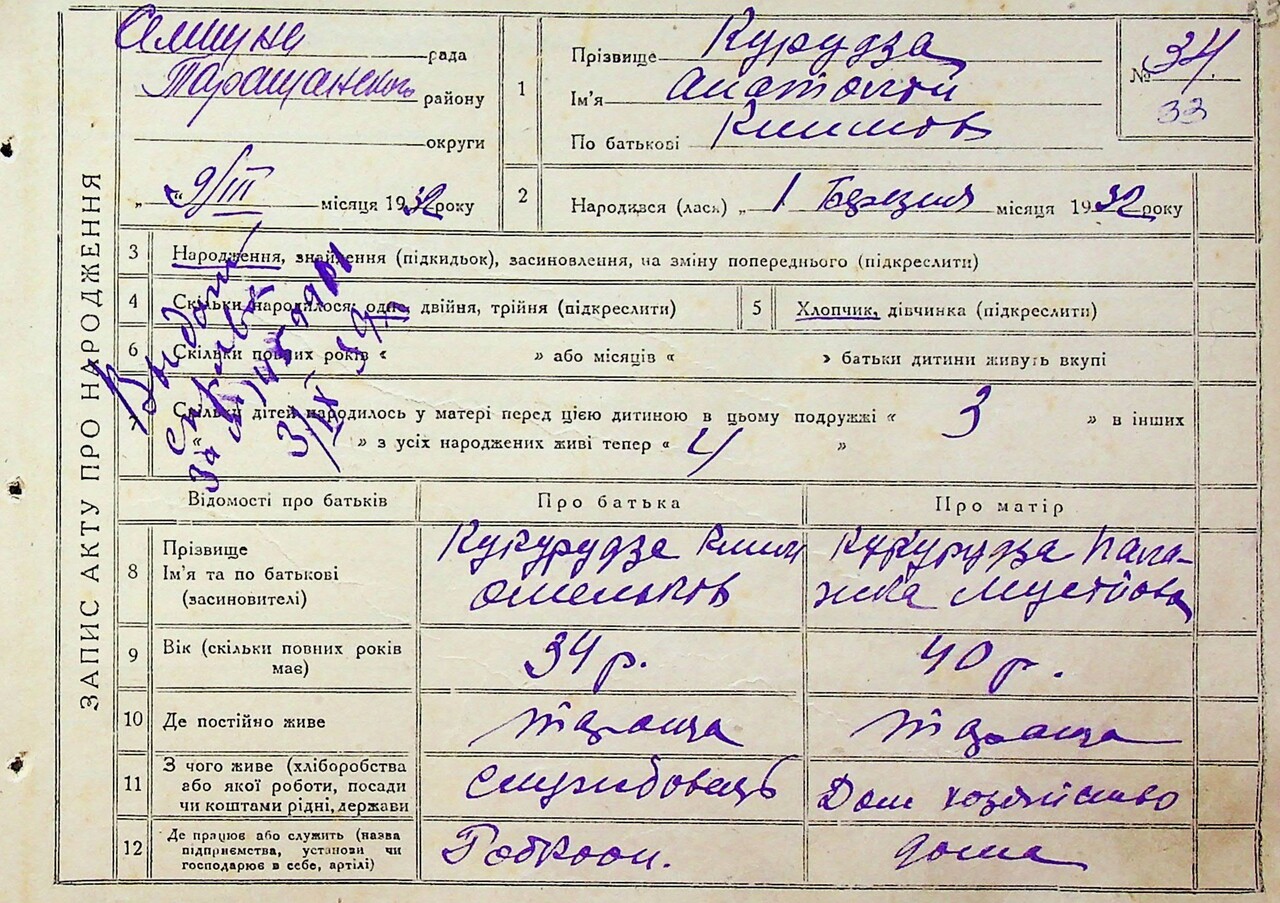 ЗАПИС АКТУ ПРО НАРОДЖЕННЯ
Селищна рада
Таращанского району
округи
„ 9/III місяця 1932 року
1 Прізвище Курудза
Ім'я Анатолій
По батькові Климов
№ 34.
33
2 Народився (лась) „ 1 Березня місяця 1932 року
3 Народження, знайдення (підкидьок), засиновлення, на зміну попереднього (підкреслити)
4 Скільки народилося: одно, двійня, трійня (підкреслити)
5 Хлопчик, дівчинка (підкреслити)
6 Скільки повних років « » або місяців « » батьки дитини живуть вкупі
7 Скільки дітей народилось у матері перед цією дитиною в цьому подружжі « 3 » в інших
« » з усіх народжених живі тепер « 4 »
Выдано
за №
3/IX 39
Відомості про батьків Про батька Про матір
8 Прізвище
Ім'я та по батькові
(засиновителі)
Кукурудза Клим
Омельков
Кукурудза Пала-
жка Мусійова
9 Вік (скільки повних років
має)
34 р.
40 р.
10 Де постійно живе Тараща Тараща
11 З чого живе (хліборобства
або якої роботи, посади
чи коштами рідні, держави
службовець
Дом хозяйство
12 Де працює або служить (назва
підприємства, установи чи
господарює в себе, артілі)
Робкооп.
дома